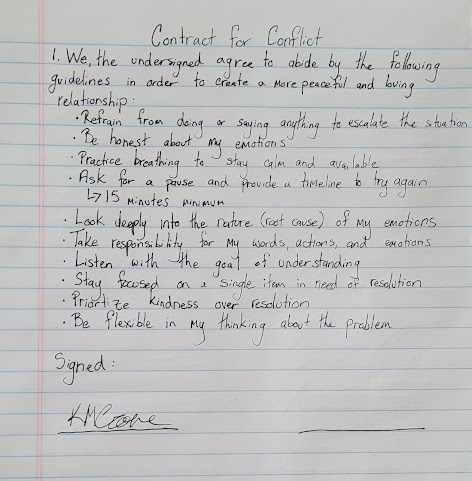 Contract for Conflict
1. We, the undersigned agree to abide by the following
guidelines in order to create a more peaceful and loving
relationship:
· Refrain from doing or saying anything to escalate the situation
· Be honest about my emotions
· Practice breathing to stay calm and available
· Ask for a pause and provide a timeline to try again
↳ 15 minutes minimum
· Look deeply into the nature (root cause) of my emotions
· Take responsibility for my words, actions, and emotions
· Listen with the goal of understanding
· Stay focused on a single item in need of resolution
· Prioritize kindness over resolution
· Be flexible in my thinking about the problem
Signed: